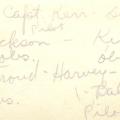 Capt. Kerr
Pilot
ckson - K
obs. obs
roud - Harvey -
us. 1 Bal
Pilo